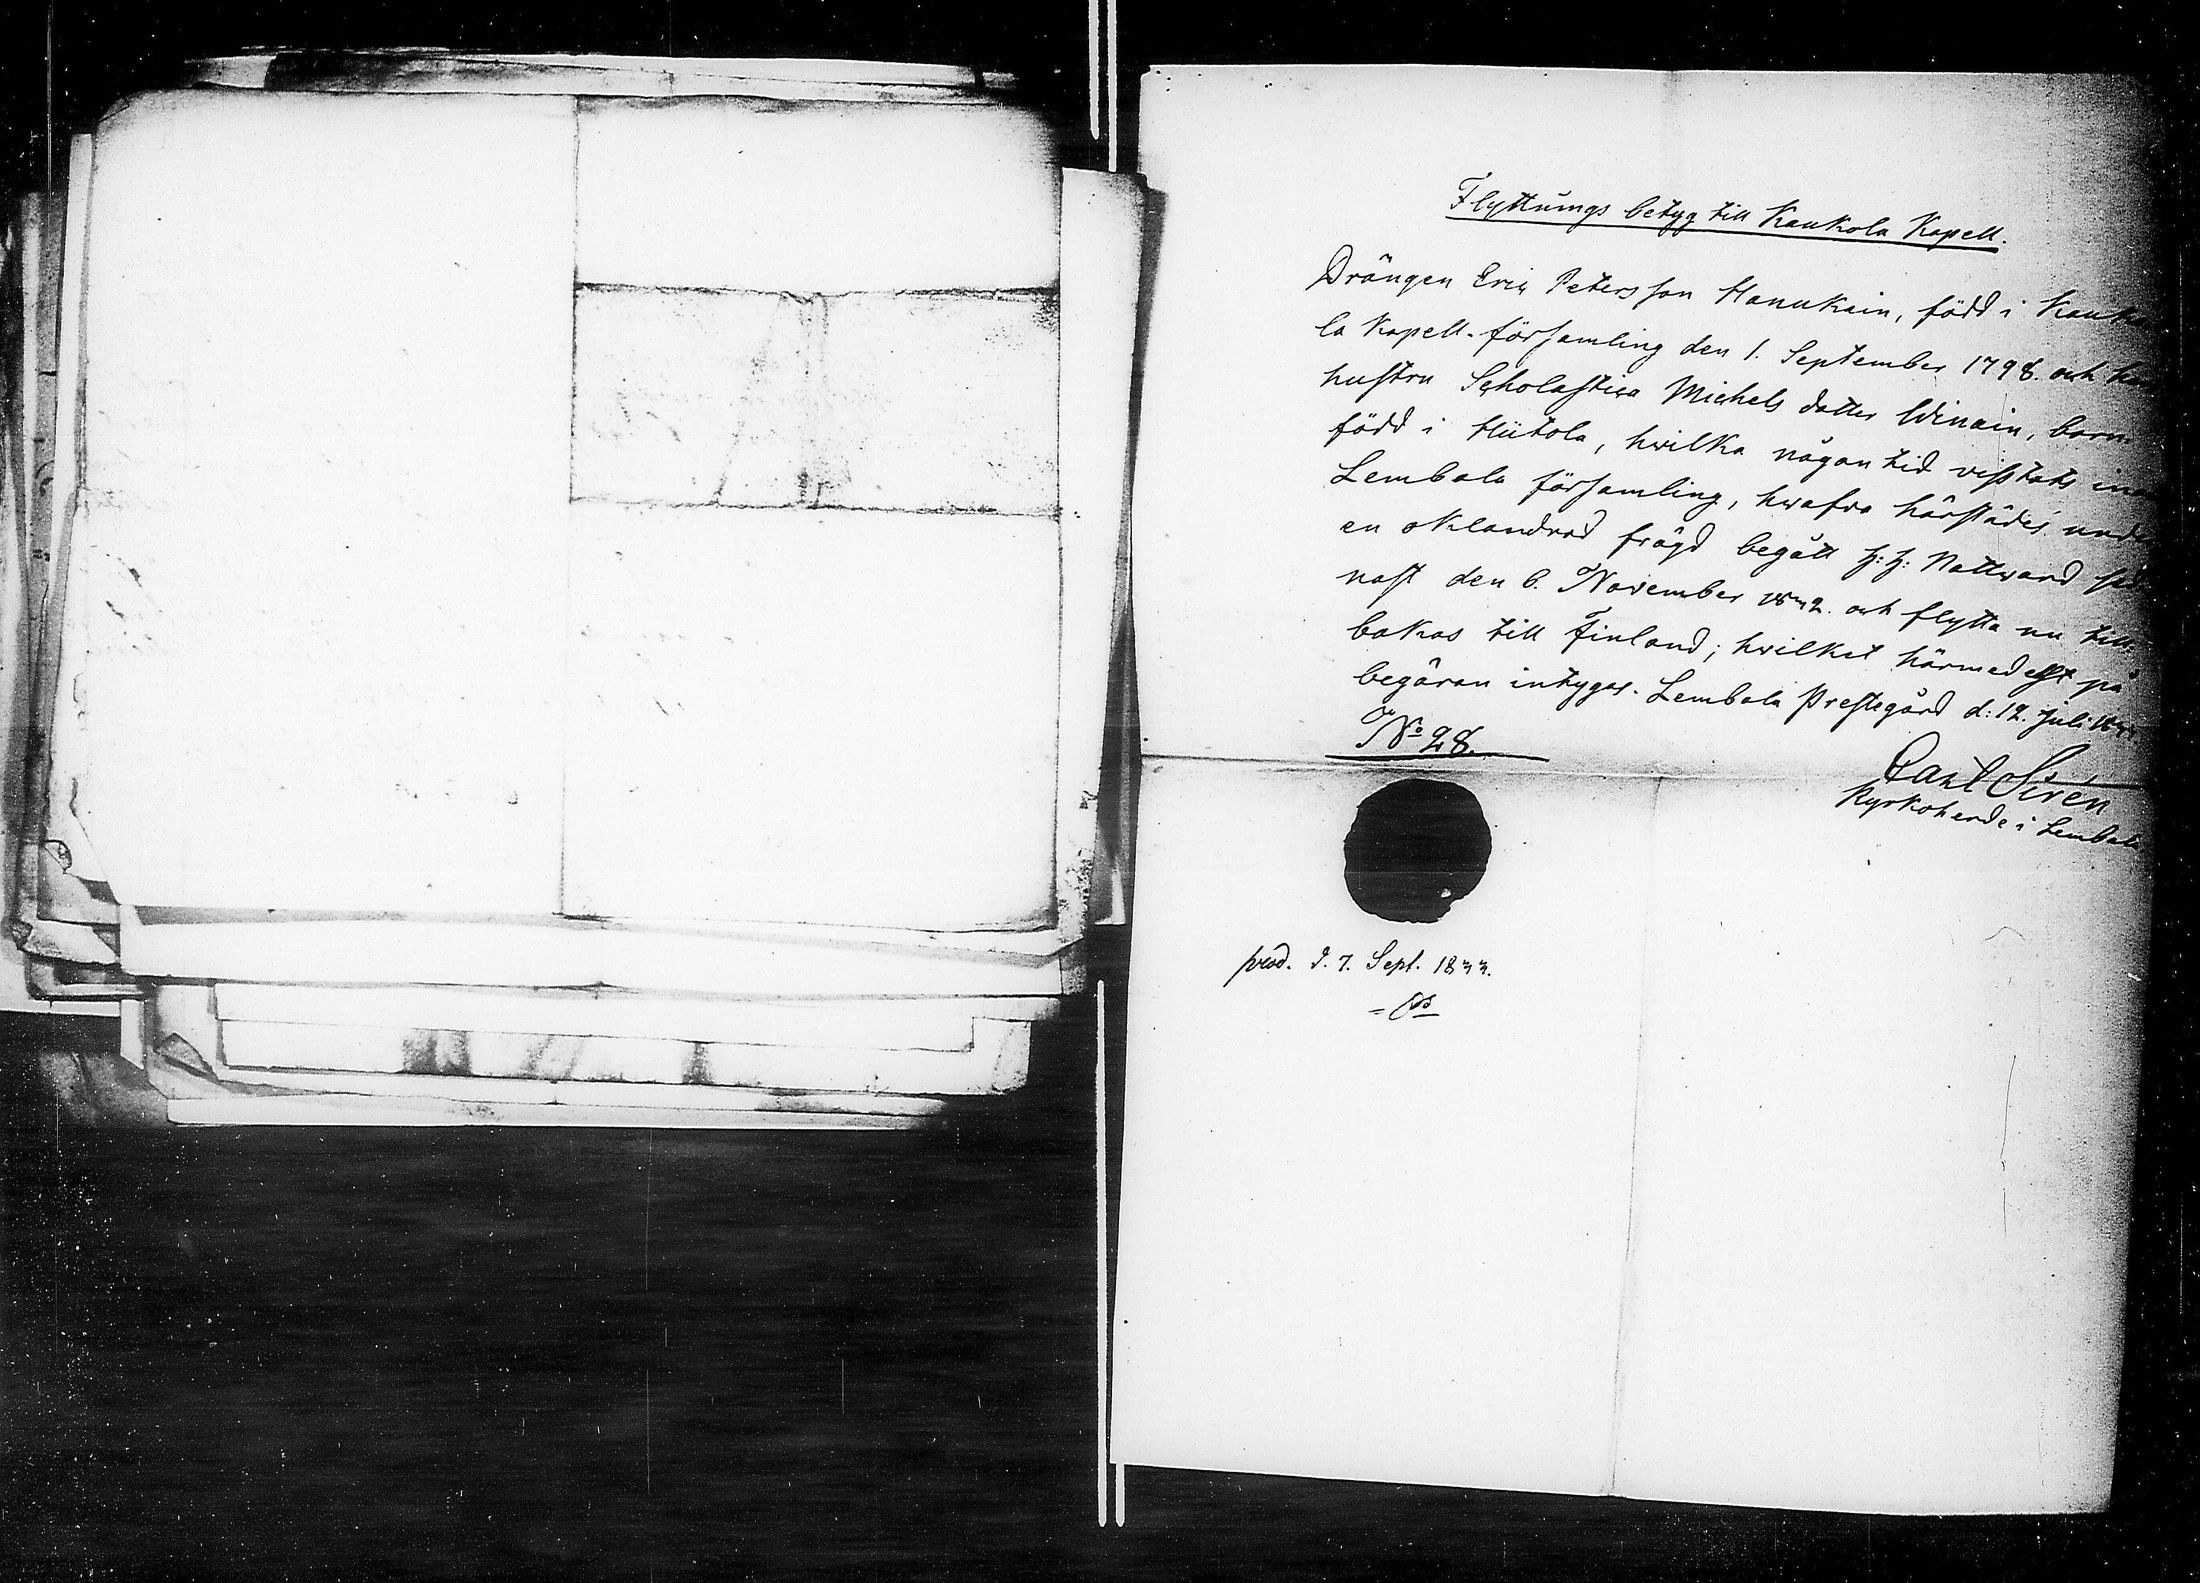 Flyttnings betyg till Kaukola Kapell.
Drängen Eric Petersson Hanukain, född i Kauko
la Kapell-församling den 1. September 1798. och
hustru Scholastica Michels dotter Winain, barn-
född i Hiitola, hvilka någon tid visstats inom
Lembala församling, hwafva härstädes under
en oklandrad frägd begått H: H: Nattward
nast den 6. November 1832. och flytta nu till-
bakas till Finland; hvilket härmedelst på
begäran intygas. Lembala Prestegård d: 12. Juli 1833
No 28.
Carl Sirén
Kyrkoherde i Lembala
prod. d. 7. Sept. 1833.